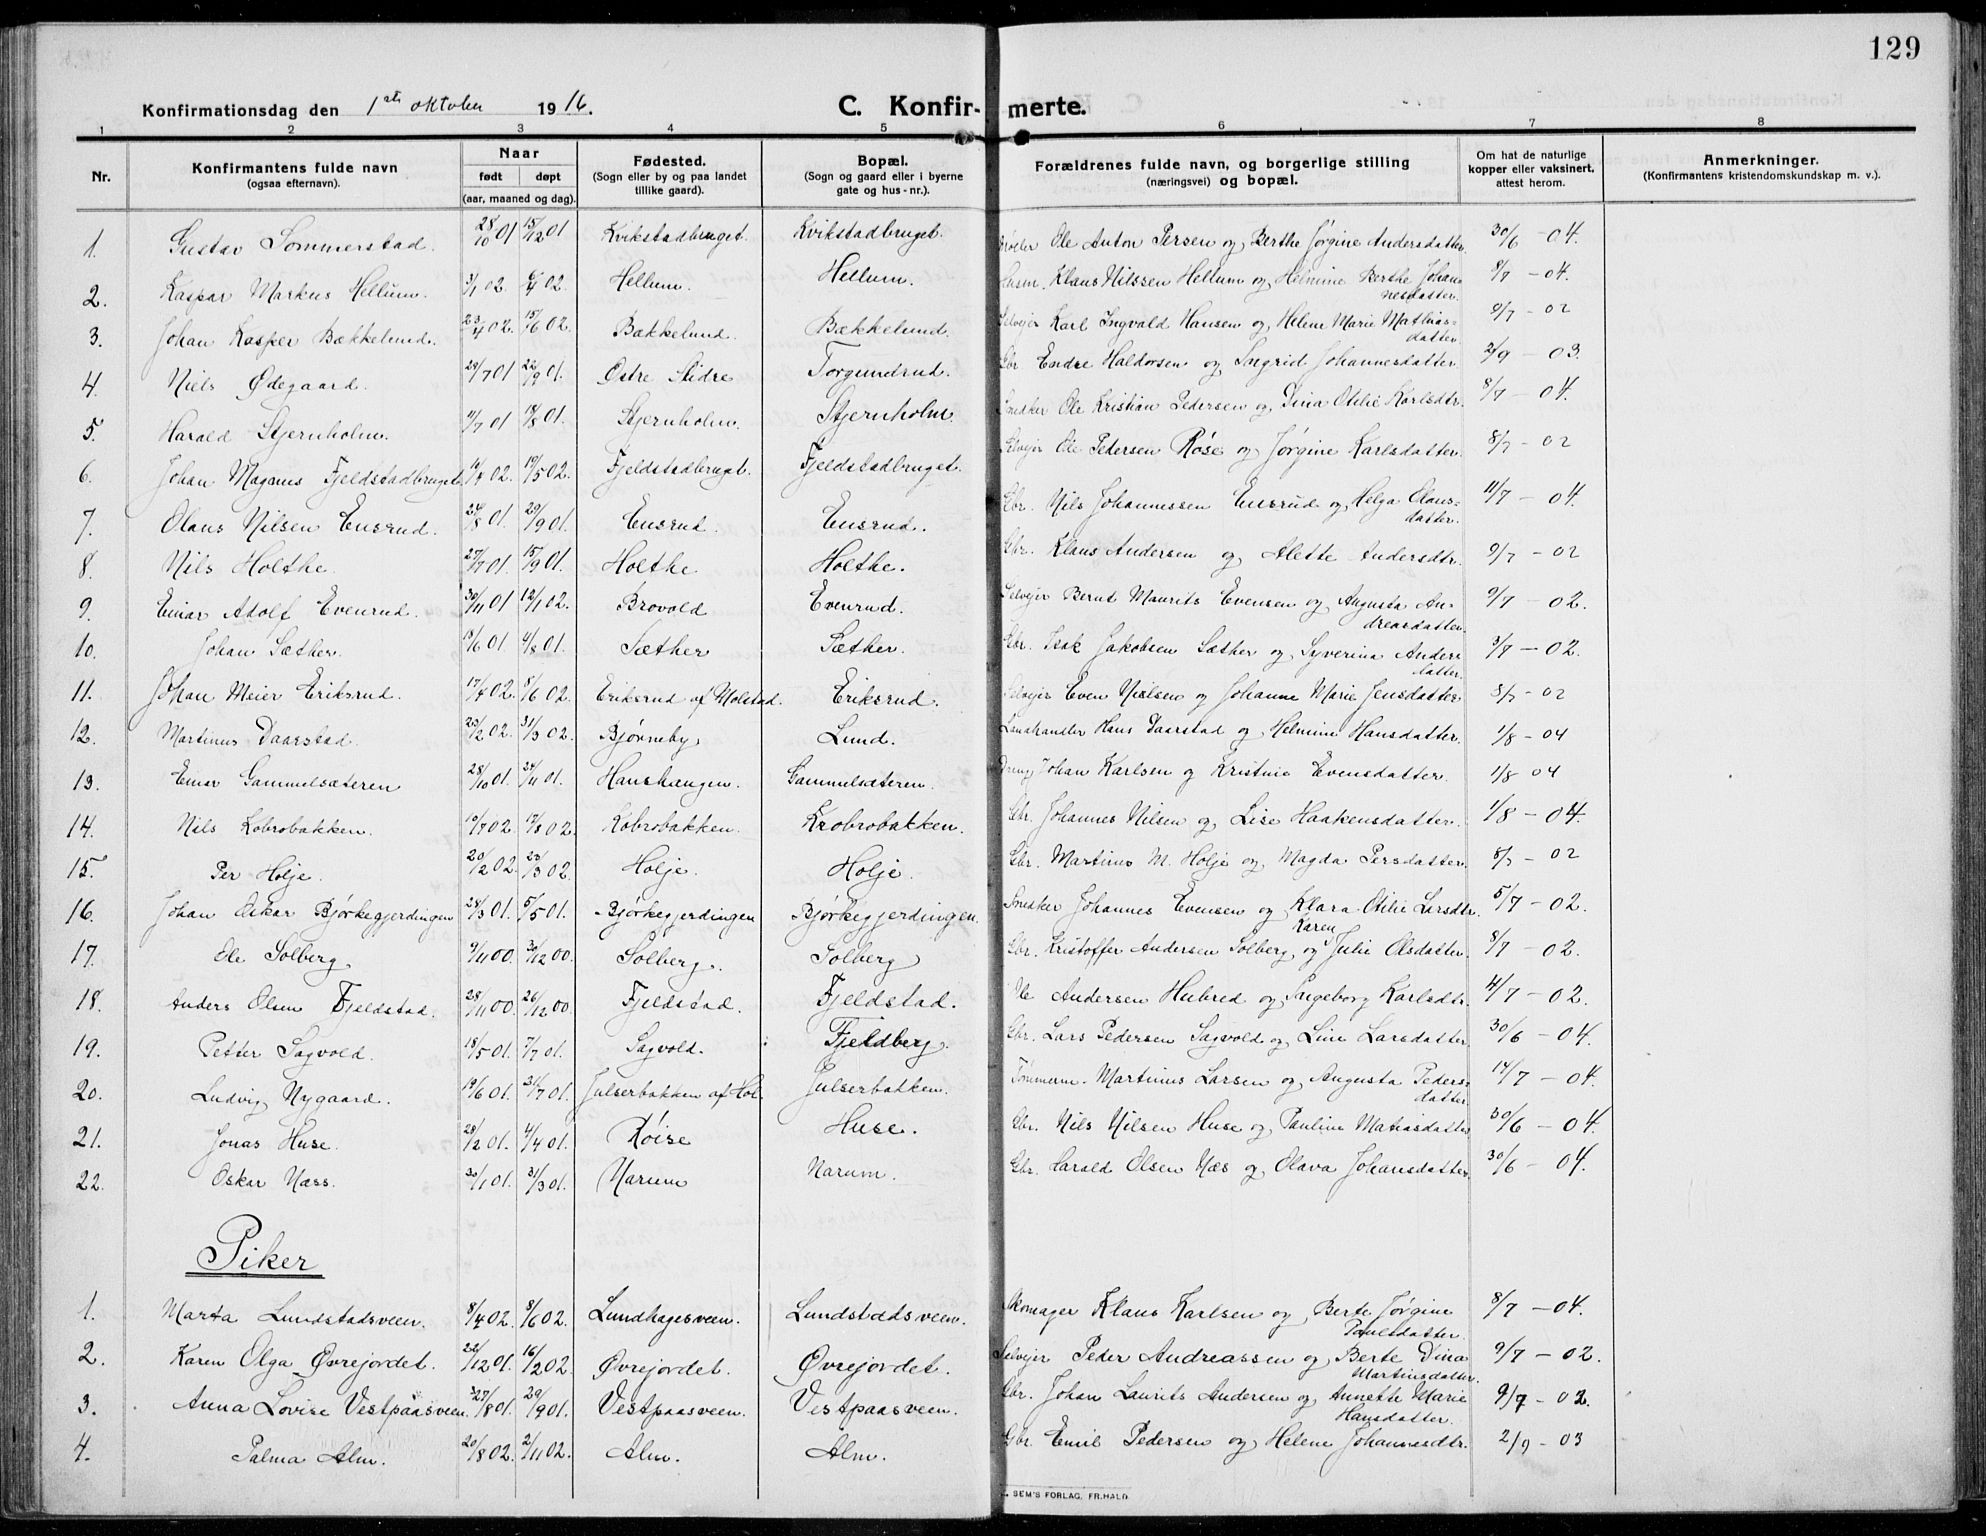 129
Konfirmationsdag den 1ste oktober 1916. C. Konfir-merte.
1 2 3 4 5 6 7 8
Nr. Konfirmantens fulde navn (ogsaa efternavn). Naar født døpt (aar, maaned og dag). Fødested. (Sogn eller by og paa landet tillike gaard). Bopæl. (Sogn og gaard eller i byerne gate og hus-nr.). Forældrenes fulde navn, og borgerlige stilling (næringsvei) og bopæl. Om hat de naturlige kopper eller vaksinert, attest herom. Anmerkninger. (Konfirmantens kristendomskundskap m. v.).
1. Gustav Sommerstad. 28/10 01 15/12 01 Kvikstadbruget. Kvikstadbruget. Ole Anton Persen og Berthe Jørgine Andersdatter. 30/6 - 04.
2. Kaspar Markus Hellum. 3/1 02. 02. Hellum. Hellum. Husm. Klaus Nilssen Hellum og Helmine Berthe Johannesdatter. 8/7 - 04.
3. Johan Kasper Bækkelund. 23/4 02. 15/6 02. Bækkelund. Bækkelund. Selvejer Karl Ingvald Hansen og Helene Marie Mathiasdatter. 9/7 - 02
4. Niels Ødegaard. 24/7 01 22/9 01. Østre Slidre Torgundrud. Gbr Endre Haldorsen og Ingrid Johannesdatter. 2/9 - 03.
5. Harald Stjernholm. 11/7 01 18/8 01. Stjernholm. Stjernholm. Snedker Ole Kristian Pedersen og Dina Otilie Karlsdtr. 8/7 - 04.
6. Johan Magnus Fjeldstadbruget 02. 19/5 02. Fjeldstadbruget. Fjeldstadbruget. Selvejer Ole Pedersen Røse og Jørgine Karlsdatter. 8/7 - 02
7. Olaus Nilsen Ensrud. 24/8 01. 29/9 01. Ensrud. Ensrud. Gbr. Nils Johannessen Ensrud og Helga Olausdatter. 11/7 - 04.
8. Nils Holthe. 27/7 01. 15/9 01. Holthe Holthe. Gbr. Klaus Andersen og Alette Andersdtr. 9/7 - 02
9. Einar Adolf Evenrud. 30/11 01 12/1 02. Brovold Evenrud. Selvejer Bernt Maurits Evensen og Augusta Andreasdatter. 9/7 - 02.
10. Johan Sæther. 13/6 01. 4/8 01. Sæther Sæther. Gbr. Isak Jakobsen Sæther og Syverina Andersdatter. 3/7 - 02.
11. Johan Meier Eriksrud. 17/4 02. 8/6 02. Eriksrud af Molstad. Eriksrud. Selvejer Even Nielsen og Johanne Marie Jensdatter 8/7 - 02
12. Martinus Daarstad. 23/2 02. 31/3 02. Bjørneby Lund. Landhandler Hans Daarstad og Helmine Hansdatter. 1/8 - 04
13. Einar Gammelsæteren 28/10 01. 24/11 01. Hanshaugen. Gammelsæteren. Dreng Johan Karlsen og Kristine Evensdatter. 1/8 04
14. Nils Kobrobakken. 19/7 02. 17/8 02. Kobrobakken. Krobrobakken. Gbr. Johannes Nilsen og Lise Haakensdatter. 1/8 - 04.
15. Per Holje. 20/2 02. 23/3 02. Holje. Holje. Gbr. Martinus M. Holje og Magda Persdatter. 8/7 - 02
16. Johan Oskar Bjørkegjerdingen 28/3 01. 5/5 01. Bjørkegjerdingen Bjørkegjerdingen. Snedker Johannes Evensen og Klara Otilie Larsdtr. 5/7 - 02.
17. Ole Solberg. 9/11 00. 30/12 00. Solberg. Solberg Gbr. Kristoffer Andersen Solberg og Karen Julie Olsdatter. 8/7 - 02.
18. Anders Olsen Fjeldstad. 28/11 00. 26/12 00. Fjeldstad. Fjeldstad. Ole Andersen Hubred og Ingeborg Karlsdtr. 4/7 - 02.
19. Petter Sagvold. 18/5 01. 7/7 01. Sagvold. Fjeldberg. Gbr. Lars Pedersen Sagvold og Line Larsdatter 30/6 - 04.
20. Ludvig Nygaard. 19/6 01. 21/7 01. Julserbakken af Hol. Julserbakken. Tømmerm. Martinus Larsen og Augusta Pedersdatter 14/7 - 04.
21. Jonas Huse. 28/2 01. 4/4 01. Røise Huse. Gbr. Nils Nilsen Huse og Pauline Matiasdatter 30/6 - 04.
22. Oskar Næss. 30/1 01. 31/3 01. Narum Narum. Gbr. Harald Olsen Næs og Olava Johansdatter. 30/6 - 04.
Piker
1. Marta Lundstadsveen. 8/4 02. 8/6 02. Lundhagesveen. Lundstadsveen. Skomager Klaus Karlsen og Berte Jørgine Paulsdatter. 8/7 - 04.
2. Karen Olga Øvrejordet. 22/12 01. 16/2 02. Øvrejordet. Øvrejordet. Selvejer Peder Andreassen og Berte Dina Martinsdatter. 9/7 - 02.
3. Anna Lovise Vestpaasveen. 27/8 01. 29/9 01. Vestpaasveen. Vestpaasveen. Gbr. Johan Laurits Andersen og Annette Marie Hansdatter. 9/7 - 02.
4. Palma Alm. 20/8 02. 2/11 02. Alm. Alm. Gbr. Emil Pedersen og Helene Johannesdtr. 2/9 - 03
SEM'S FORLAG, FR.HALD.